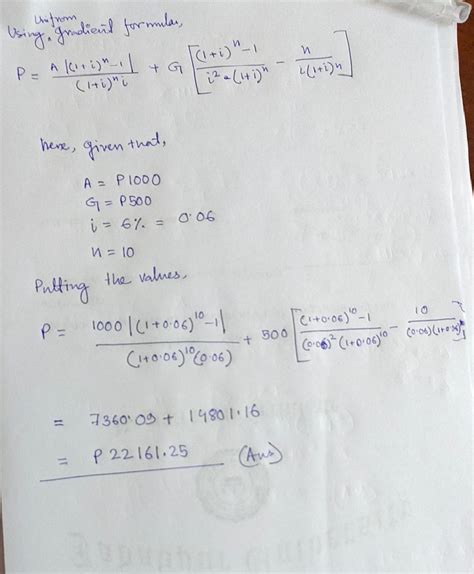 Using uniform gradient formulas,
P = A |(1+i)^n - 1| / (1+i)^n i + G [ (1+i)^n - 1 / i^2 * (1+i)^n - n / i(1+i)^n ]
here, given that,
A = P1000
G = P500
i = 6% = 0.06
n = 10
Putting the values,
P = 1000 |(1+0.06)^10 - 1| / (1+0.06)^10 (0.06) + 500 [ (1+0.06)^10 - 1 / (0.06)^2 (1+0.06)^10 - 10 / (0.06)(1+0.06)^10 ]
= 7360.09 + 14801.16
= P 22161.25 (Ans)